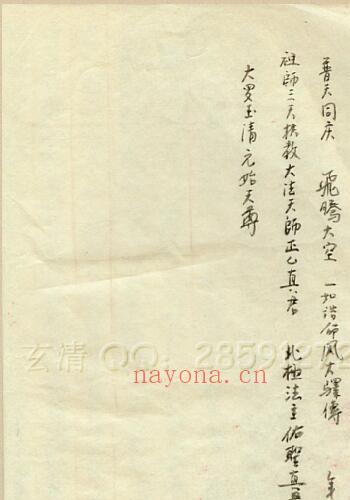 普天同庆 飛騰太空 一如誥命風火驛傳
祖師三天扶教大法天師正乙真君 北極法主佑聖真
大罗玉清元始天尊
玄清 QQ: 28599272
nayona.cn